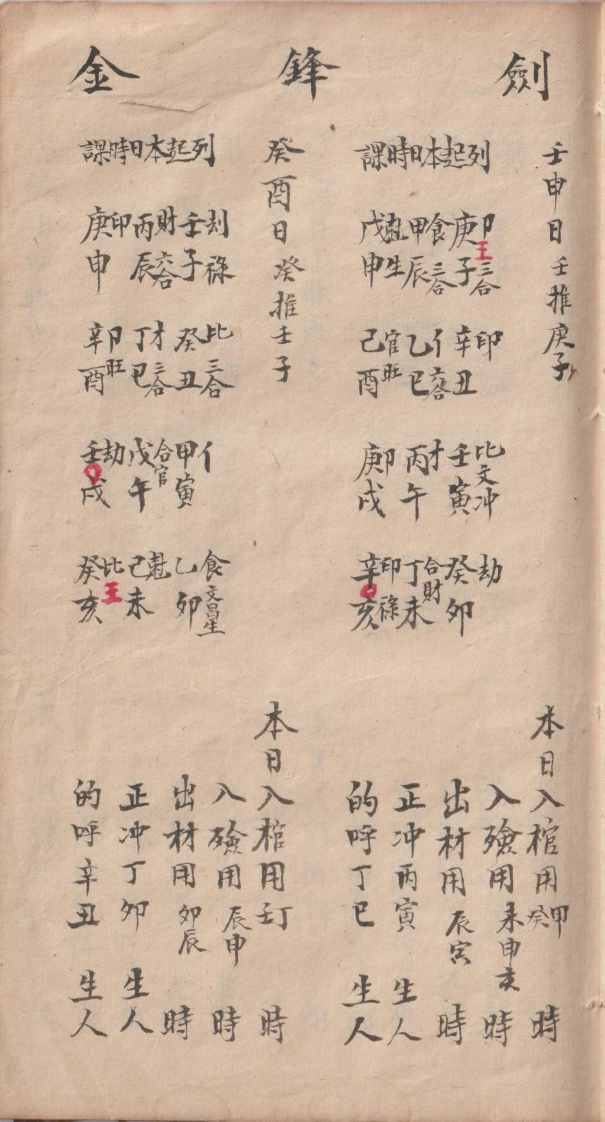 劍鋒金
壬申日壬推庚子
列起本日時課
庚子 卩 王 三合
辛丑 印
壬寅 比 文 冲
癸卯 劫
甲辰 食 三合
乙巳 亻 六合
丙午 才
丁未 合財
戊申 生
己酉 官 旺
庚戌 卩
辛亥 印 祿
本日入棺用甲癸時
入殮用未申亥時
出材用辰寅時
正冲丙寅生人
的呼丁巳生人
癸酉日癸推壬子
列起本日時課
壬子 劫 祿
癸丑 比 三合
甲寅 亻
乙卯 食 文昌星
丙辰 財 六合
丁巳 才 三合
戊午 合官
己未
庚申 印
辛酉 卩 旺
壬戌 劫
癸亥 比 王
本日入棺用壬丁時
入殮用辰申時
出材用卯辰時
正冲丁卯生人
的呼辛丑生人